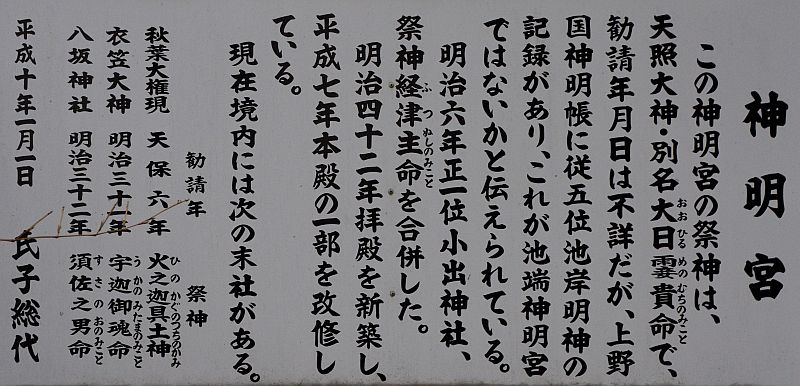 神明宮
この神明宮の祭神は、
天照大神・別名大日孁貴命で、
勧請年月日は不詳だが、上野
国神明帳に従五位池岸明神の
記録があり、これが池端神明宮
ではないかと伝えられている。
明治六年正一位小出神社、
祭神経津主命を合併した。
明治四十二年拝殿を新築し、
平成七年本殿の一部を改修し
ている。
現在境内には次の末社がある。
勧請年 祭神
秋葉大権現 天保六年 火之迦具土神
衣笠大神 明治三十一年 宇迦御魂命
八坂神社 明治三十二年 須佐之男命
平成十年一月一日 氏子総代